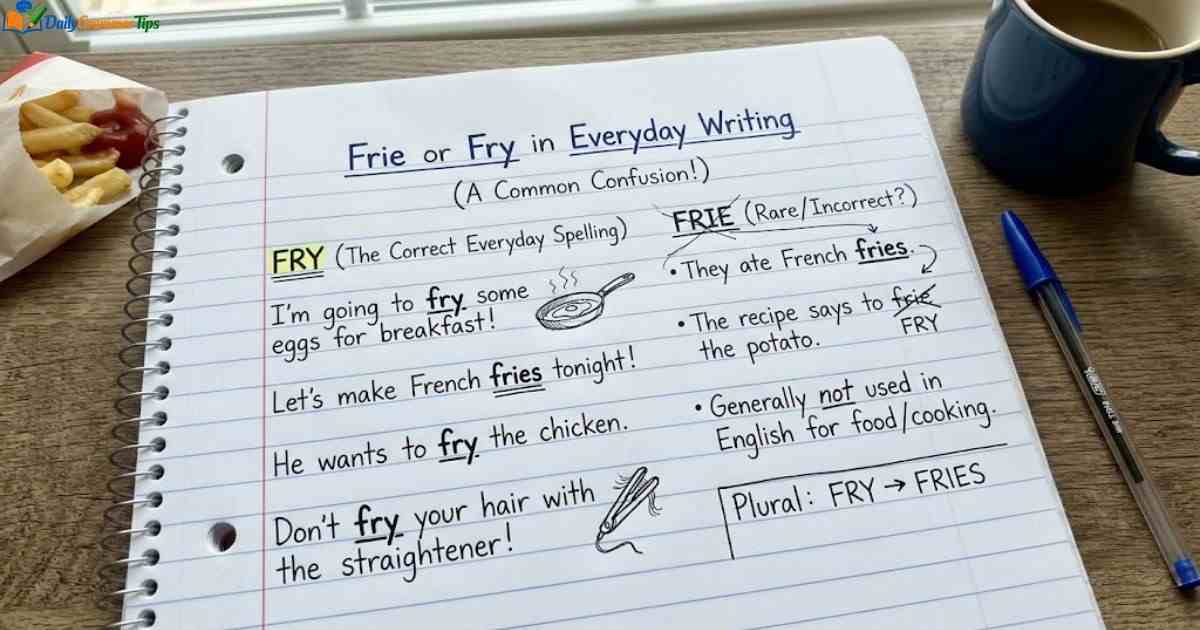 Daily Grammar Tips
Frie or Fry in Everyday Writing
(A Common Confusion!)
FRY (The Correct Everyday Spelling)
I'm going to fry some
eggs for breakfast!
Let's make French fries tonight!
He wants to fry the chicken.
Don't fry your hair with
the straightener!
FRIE (Rare/Incorrect?)
• They ate French fries.
• The recipe says to frie
FRY
the potato.
• Generally not used in
English for food/cooking.
Plural: FRY → FRIES